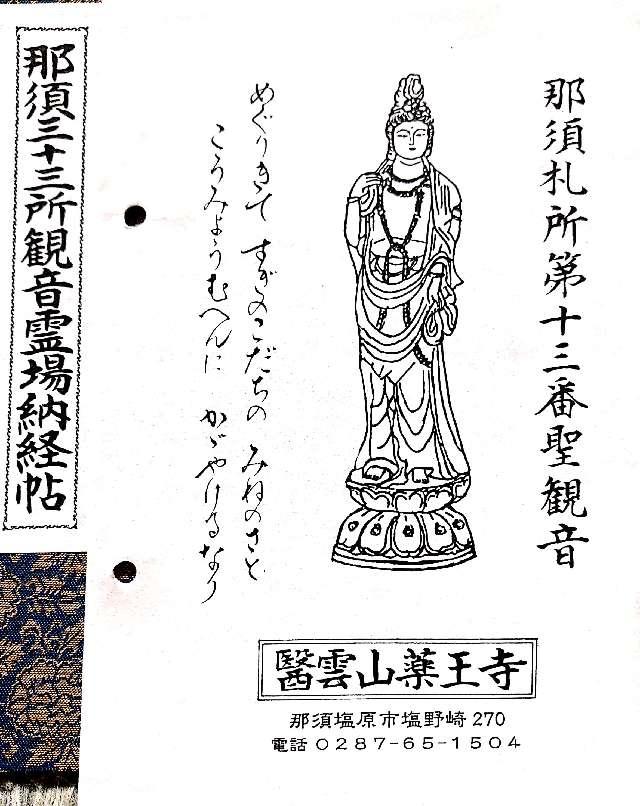 那須札所第十三番聖観音
めぐりきて すぎのこだちの みねのさと
こうみょうむへんに かゞやけるなり
醫雲山薬王寺
那須塩原市塩野崎270
電話0287-65-1504
那須三十三所観音霊場納経帖